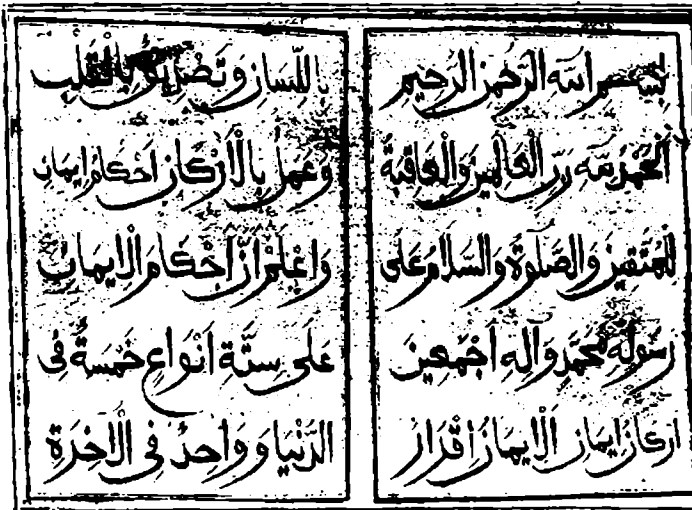 بسم الله الرحمن الرحيم
الحمد لله رب العالمين والعاقبة
للمتقين والصلوة والسلام على
رسوله محمد وآله اجمعين
اركان ايمان الايمان اقرار
باللسان وتصديق بالقلب
وعمل بالاركان احكام ايمان
واعلم ان احكام الايمان
على ستة انواع خمسة فى
الدنيا وواحد فى الاخرة